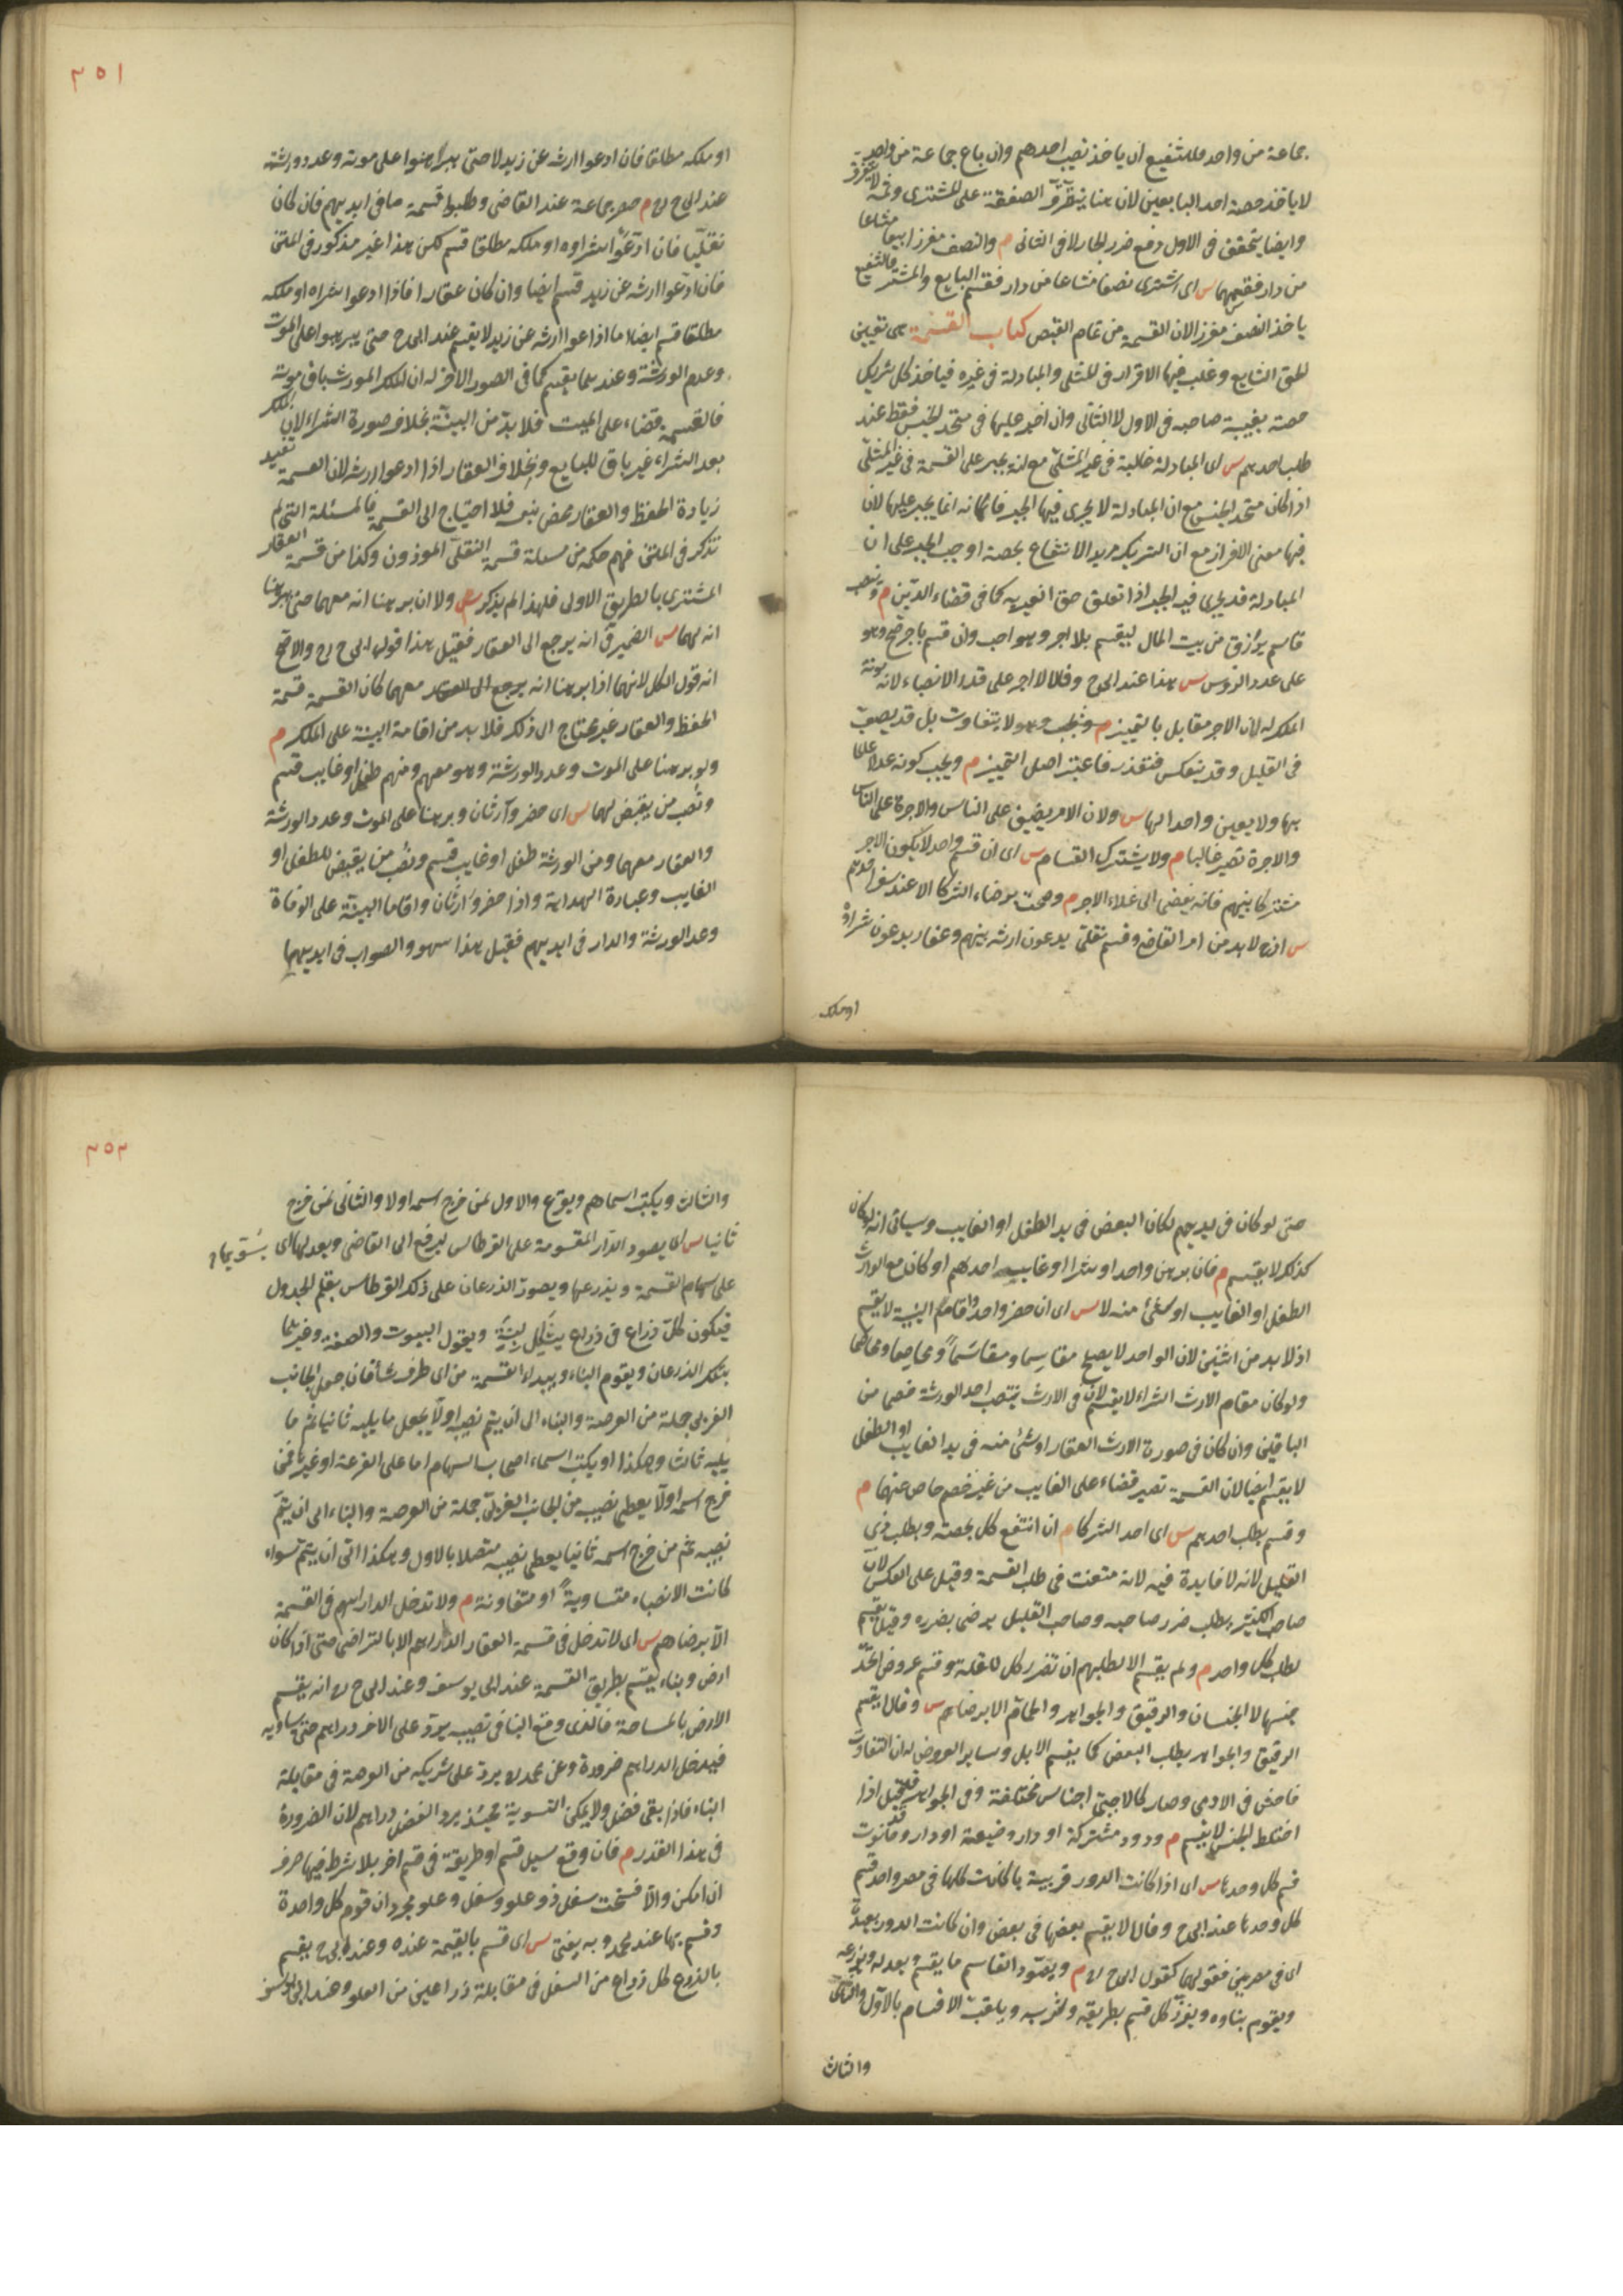 جماعة من واحد فللشفيع ان ياخذ نصيب احدهم وان باع جماعة من واحد
لا ياخذ حصة احد البايعين لان هنا يتفرق الصفقة على المشترى وثمه لا يتفرق
وايضا يتحقق فى الاول دفع ضرر الجار لا فى الثانى م والنصف مفرزا بيع مشاعا
من دار فقسمهما س اى اشترى نصفا مشاعا من دار فقسم البايع والمشترى فالشفيع
ياخذ النصف مفرزا لان القسمة من تمام القبض كتاب القسمة هى تعيين
الحق الشايع وغلب فيها الافراز فى المثلى والمبادلة فى غيره فياخذ كل شريك
حصته بغيبة صاحبه فى الاول لا الثانى وان اجبر عليها فى متحد الجنس فقط عند
طلب احدهم س اى المبادلة غالبة فى غير المثلى مع انه يجبر على القسمة فى غير المثلى
اذا كان متحد الجنس مع ان المبادلة لا يجرى فيها الجبر فانه انما يجبر عليها لان
فيها معنى الافراز مع ان الشريك يريد الانتفاع بحصته اوجب الجبر على ان
المبادلة قد يجرى فيه الجبر اذا تعلق حق الغير به كما فى قضاء الدين م ونصب
قاسم يرزق من بيت المال ليقسم بلا اجر وهو احب وان قسم باجر صح وهو
على عدد الروس س هذا عند ابى ح وقالا الاجر على قدر الانصباء لانه مونة
الملك له لان الاجر مقابل بالتمييز وهو لا يتفاوت بل قد يصعب
فى القليل وقد ينعكس فتعذر فاعتبر اصل التمييز م ويجب كونه عدلا عالما
بها ولا يعين واحد لها س ولان الامر يضيق على الناس والاجرة على الناس
والاجرة تصير غاليا م ولا يشترك القسام س اى ان قسم واحد لا يكون الاجر
مشتركا بينهم فانه يفضى الى غلاء الاجر م وصحت برضاء الشركا الا عند صغر احدهم
س اذ لا بد من امر القاضى وقسم نقلى يدعون ارثه بينهم وعقار يدعون شراؤه
او ملكه
٣٥١
او ملكه مطلقا فان ادعوا ارثه عن زيد لا حتى يبرهنوا على موته وعدد ورثته
عند ابى ح ره م حضر جماعة عند القاضى وطلبوا قسمة ما فى ايديهم فان كان
نقليا فان ادعوا شراوه او ملكه مطلقا قسم لكن هذا غير مذكور فى المتن
فان ادعوا ارثه عن زيد قسم ايضا وان كان عقارا فاذا ادعوا شراه او ملكه
مطلقا قسم ايضا اما اذا دعوا ارثه عن زيد لا يقسم عند ابى ح حتى يبرهنوا على الموت
وعدد الورثة وعندهما يقسم كما فى الصور الاخر له ان الملك المورث باق موته
فالقسمة قضاء على الميت فلا بد من البينة بخلاف صورة الشراء لان الملك
بعد الشراء غير باق للبايع وبخلاف غير العقار اذا ادعوا ارثه لان القسمة تفيد
زيادة الحفظ والعقار محصن بنفسه فلا احتياج الى القسمة فالمسئلة التى لم
تذكر فى المتن فهم حكمه من مسئلة قسمة النقلى الموزون وكذا من قسمة العقار
المشترى بالطريق الاولى فلهذا لم يذكر م ولا ان برهنا انه معهما حتى يبرهنا
انه لهما س الضمير فى انه يرجع الى العقار فقيل هذا قول ابى ح ره والاصح
انه قول الكل لانهما اذا برهنا انه معهما كان القسمة قسمة
الحفظ والعقار غير محتاج الى ذلك فلا بد من اقامة البينة على الملك م
ولو برهنا على الموت وعدد الورثة وهو معهم ومنهم طفل او غايب قسم
ونصب من يقبض لهما س اى حضر وارثان وبرهنا على الموت وعدد الورثة
والعقار معهما ومن الورثة طفل او غايب قسم ونصب من يقبض للطفل او
الغايب وعبارة الهداية واذا حضر وارثان واقاما البينة على الوفاة
وعدد الورثة والدار فى ايديهم فقيل هذا سهو والصواب فى ايديهما
حتى لو كان فى ايديهم لكان البعض فى يد الطفل او الغايب وسياتى انه لو كان
كذلك لا يقسم م فان برهن واحد او شرا او غايب احدهم او كان مع الوارث
الطفل او الغايب او شئ منه لا س اى ان حضر واحد واقام البينة لا يقسم
اذ لا بد من اثنين لان الواحد لا يصلح مقاسما ومقاسما ومخاصما ومخاصما
ولو كان مقام الارث الشراء لا يقسم لان فى الارث ينتصب احد الورثة خصما من
الباقين وان كان فى صورة الارث العقار او شئ منه فى يد الغايب او الطفل
لا يقسم ايضا لان القسمة تصير قضاء على الغايب من غير خصم حاضر عنهما م
وقسم بطلب احدهم س اى احد الشركا م ان انتفع كل بحصته وبطلب ذى
القليل لانه لا فايدة فيه لانه متعنت فى طلب القسمة وقيل على العكس لان
صاحب الكثير يطلب ضرر صاحبه وصاحب القليل يرضى بضرره وقيل يقسم
بطلب كل واحد م ولم يقسم الا بطلبهم ان تضرر كل للقلة وقسم عروض اتحد
جنسها لا الجنسان والرقيق والجواهر والحمام الا برضاهم س وقالا يقسم
الرقيق والجواهر بطلب البعض كما يقسم الابل وساير العروض له ان التفاوت
فاحش فى الادمى وصار كالاجناس المختلفة وفى الجواهر قد قيل اذا
اختلط الجنس لا يقسم م ودور مشتركة او دار وضيعة او دار وحانوت
قسم كل وحدها س اى اذا كانت الدور قريبة بان كانت كلها فى مصر واحد قسم
كل وحدها عند ابى ح وقالا لا يقسم بعضها فى بعض وان كانت الدور بعيدة
اى فى مصرين فقولهما كقول ابى ح ره م ويصور القاسم ما يقسم ويعدله ويذرعه
ويقوم بناوه ويفرز كل قسم بطريقه وشربه ويلقب الاقسام بالاول والثانى
والثالث
٣٥٢
والثالث ويكتب اسماهم ويقرع والاول لمن خرج اسمه اولا والثانى لمن خرج
ثانيا س اى يصور الدار المقسومة على القرطاس ليرفع الى القاضى ويعدلها اى يسويها
على سهام القسمة ويذرعها ويصور الذرعان على ذلك القرطاس بقلم الجدول
فيكون كل ذراع فى ذراع بشكل لبنة ويقول البيوت والصفة وغيرهما
بتلك الذرعان ويقوم البناء ويبداء القسمة من اى طرف شاء فان جعل الجانب
الغربى جملة من العرصة والبناء الى ان يتم نصيبه اولا يجعل ما يليه ثانيا ثم ما
يليه ثالثا وهكذا او يكتب اسماء اصحاب السهام اما على القرعة او غيرها فمن
خرج اسمه اولا يعطى نصيبه من الجانب الغربى جملة من العرصة والبناء الى ان يتم
نصيبه ثم من خرج اسمه ثانيا يعطى نصيبه متصلا بالاول وهكذا الى ان يتم سواء
كانت الانصباء متساوية او متفاوتة م ولا تدخل الدراهم فى القسمة
الا برضاهم س اى لا تدخل فى قسمة العقار الدراهم الا بالتراضى حتى اذا كان
ارض وبناء يقسم بطريق القسمة عند ابى يوسف وعند ابى ح ره انه يقسم
الارض بالمساحة فالذى وقع البنا فى نصيبه يرد على الاخر دراهم حتى يساويه
فيدخل الدراهم ضرورة وعن محمد ره يرد على شريكه من العرصة فى مقابلة
البناء فاذا بقى فضل ولا يمكن التسوية فحينئذ يرد الفضل دراهم لان الضرورة
فى هذا القدر م فان وقع مسيل قسم او طريقه فى قسم اخر بلا شرط فيها صرف
ان امكن والا فسخت سفل ذو علو وسفل وعلو مجردان قوم كل واحدة
وقسم بها عند محمد وبه يفتى س اى قسم بالقيمة عنده وعند ابى ح يقسم
بالذرع كل ذراع من السفل فى مقابلة ذراعين من العلو وعند ابى يوسف